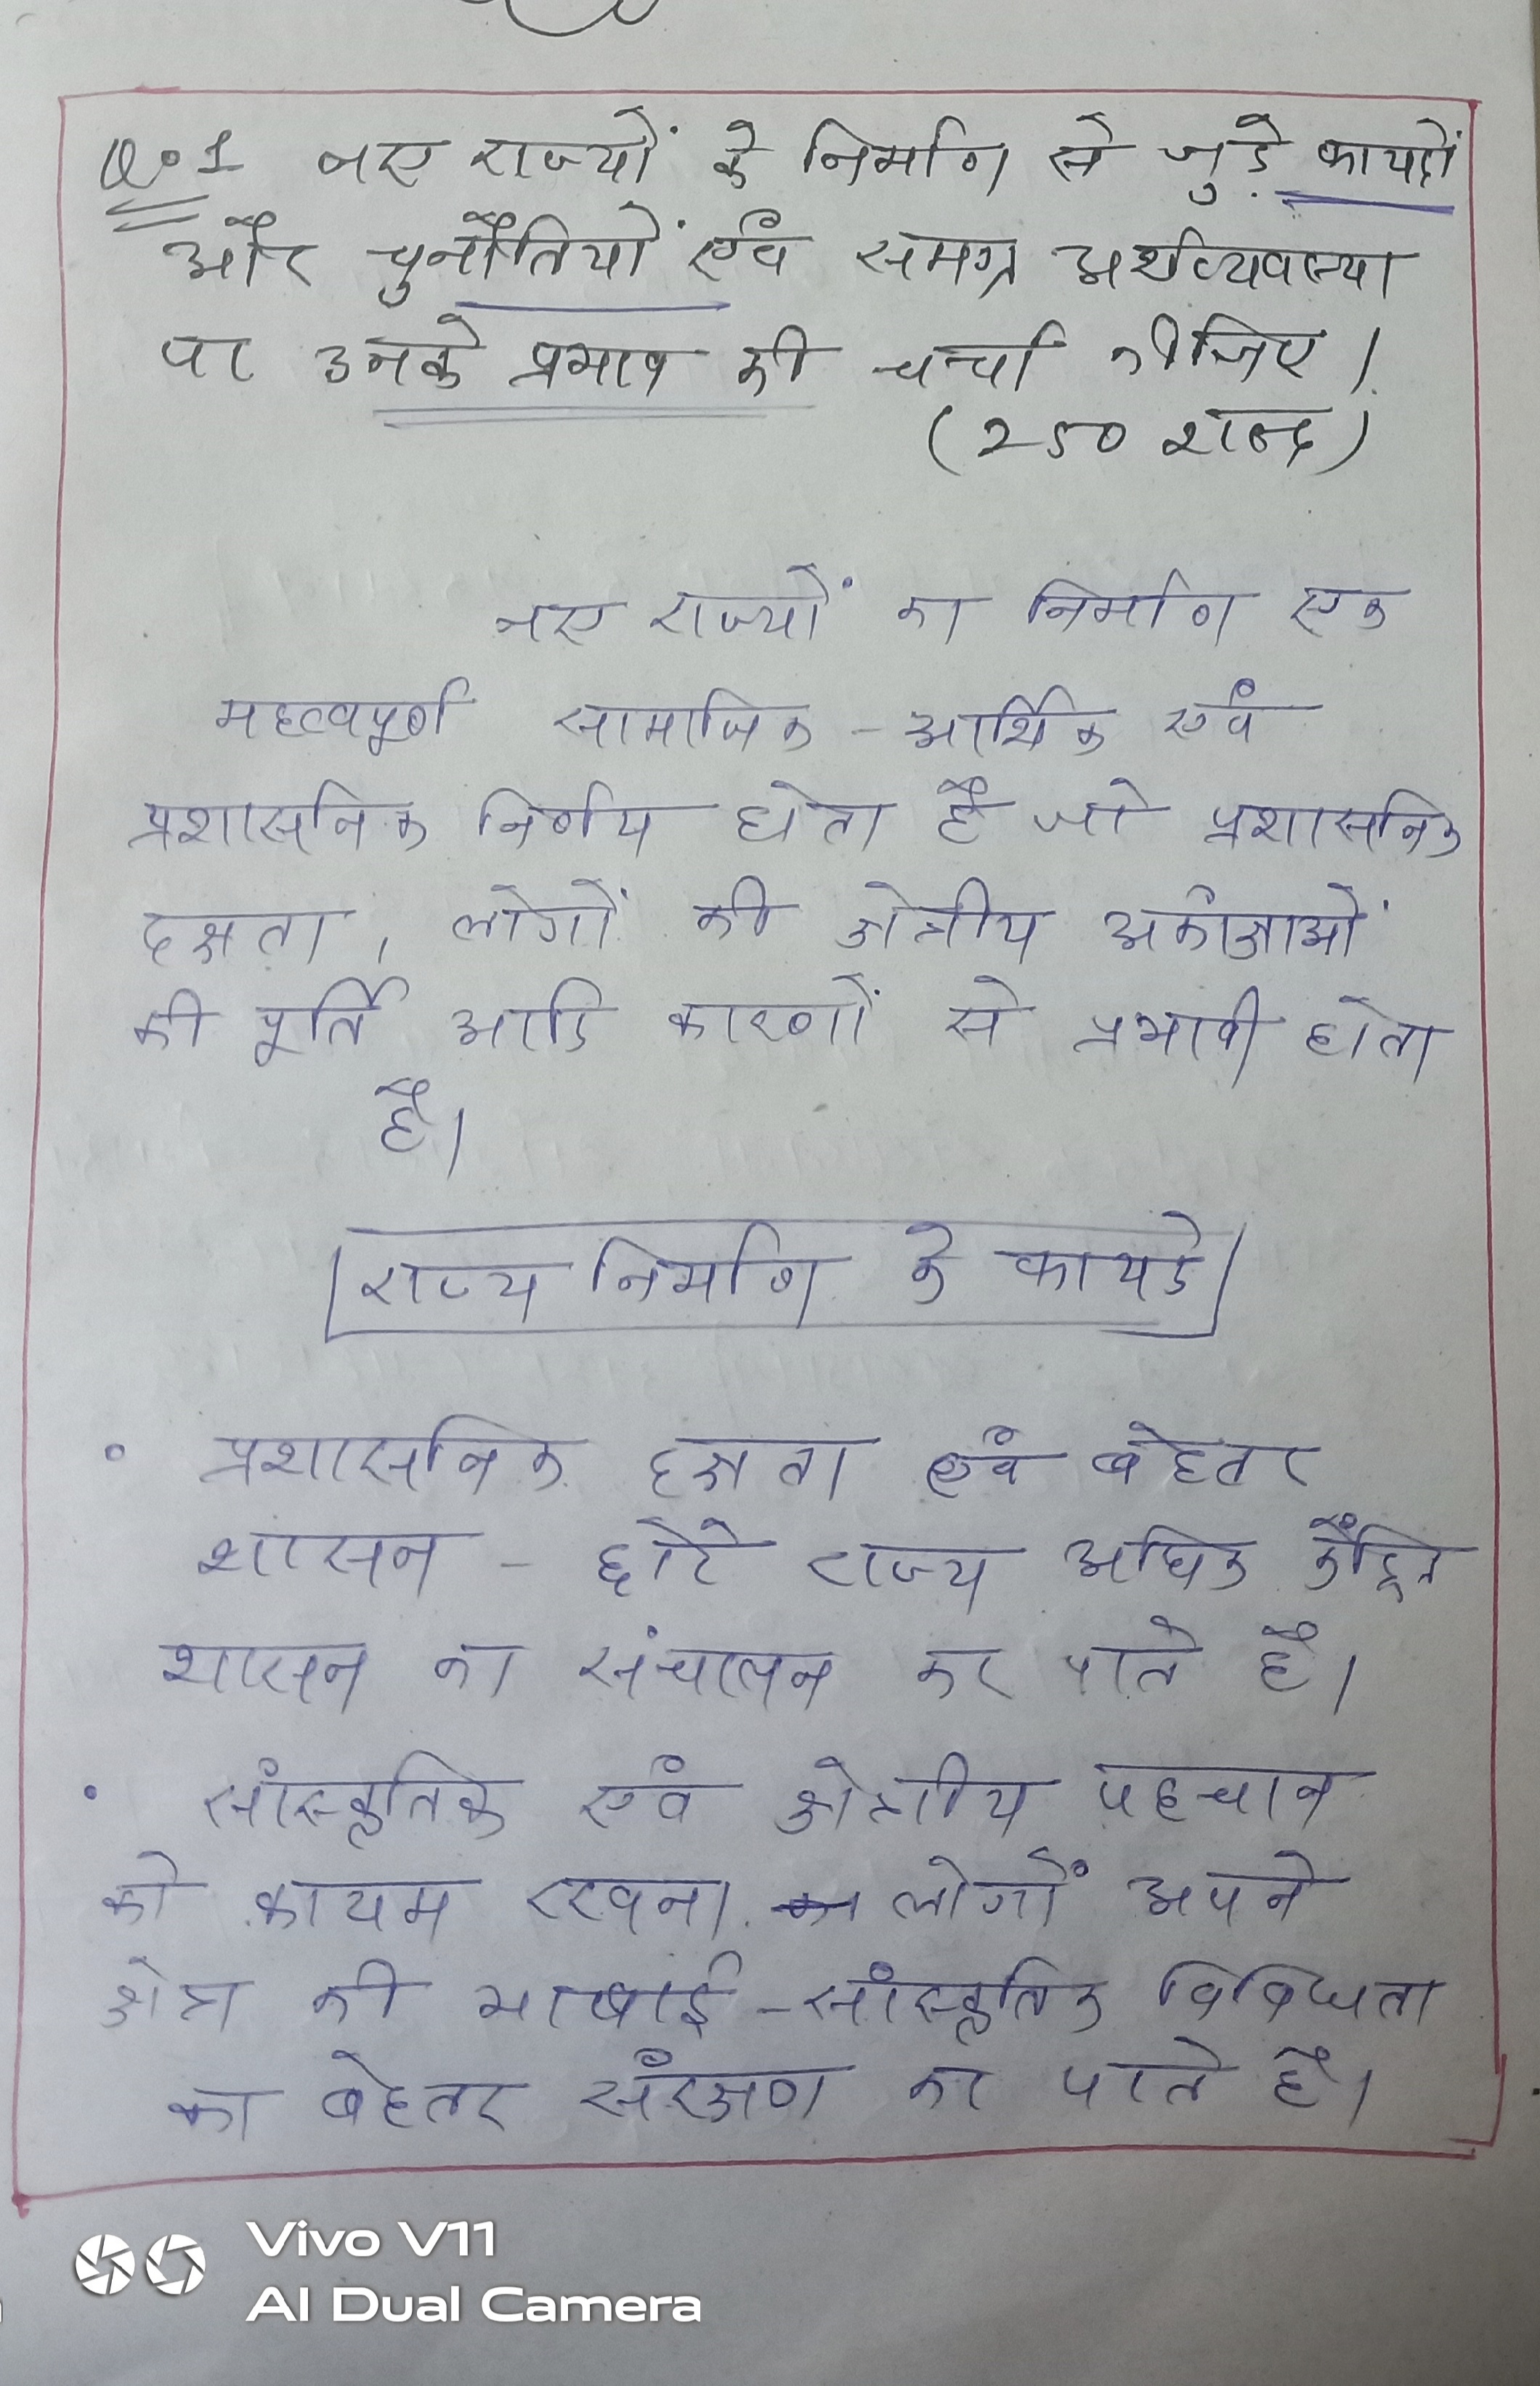 Q.1 नए राज्यों के निर्माण से जुड़े फायदों
और चुनौतियों एवं समग्र अर्थव्यवस्था
पर उनके प्रभाव की चर्चा कीजिए।
(250 शब्द)
नए राज्यों का निर्माण एक
महत्वपूर्ण सामाजिक - आर्थिक एवं
प्रशासनिक निर्णय होता है जो प्रशासनिक
दक्षता, लोगों की क्षेत्रीय अकांक्षाओं
की पूर्ति आदि कारणों से प्रभावी होता
है।
राज्य निर्माण के फायदे
• प्रशासनिक दक्षता एवं बेहतर
शासन - छोटे राज्य अधिक केंद्रित
शासन का संचालन कर पाते है।
• सांस्कृतिक एवं क्षेत्रीय पहचान
को कायम रखना लोगों अपने
क्षेत्र की भाषाई - सांस्कृतिक विविधता
का बेहतर संरक्षण कर पाते है।
Vivo V11
AI Dual Camera